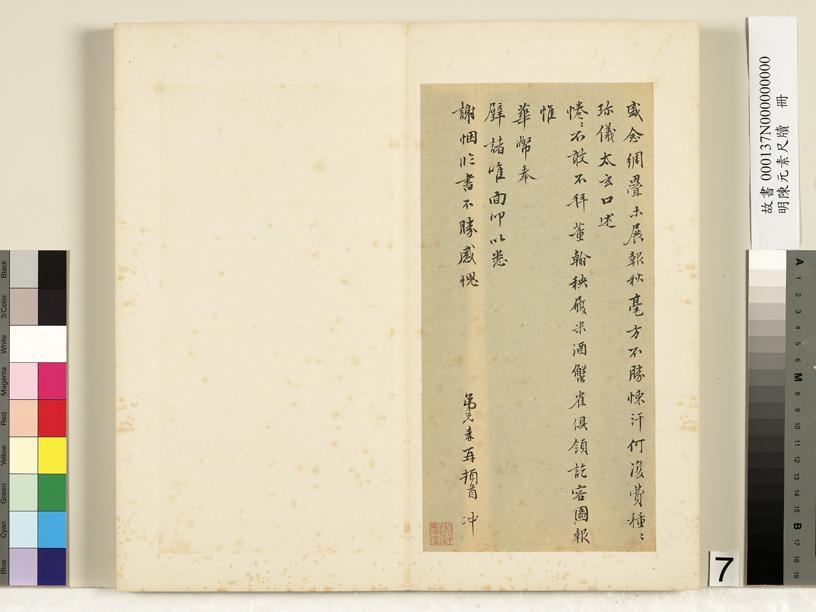 盛念綢疊未展報秋毫方不勝悚汗何復賁種〻
珍儀太玄口述
惓〻不敢不拜董翰秧履米酒蟹雀俱領訖容圖報
惟
華幣奉
璧諸唯面叩以悉
謝悃臨書不勝感愧
弟元素再頓首 冲
故書 000137N000000000
明陳元素尺牘 冊
7
Black
3/Color
White
Magenta
Red
Yellow
Green
Cyan
Blue
A 1 2 3 4 5 6 M 8 9 10 11 12 13 14 15 B 17 18 19